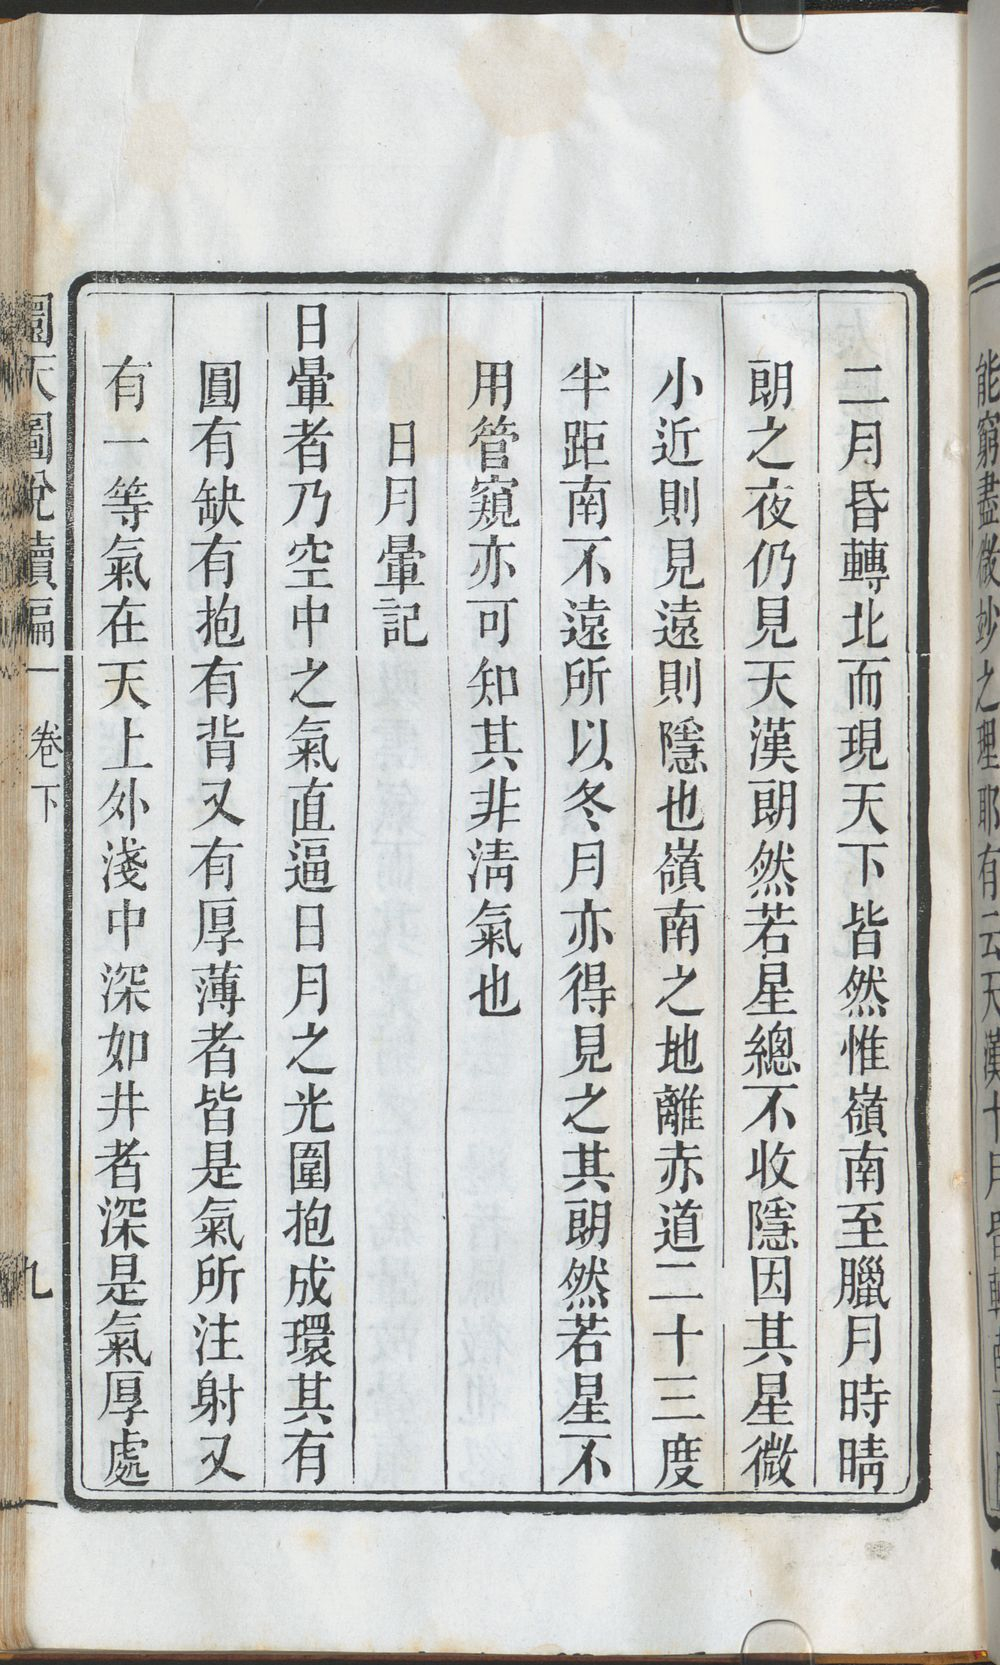 二月昏轉北而現天下皆然惟嶺南至臘月時晴
朗之夜仍見天漢朗然若星總不收隱因其星微
小近則見遠則隱也嶺南之地離赤道二十三度
半距南不遠所以冬月亦得見之其朗然若星不
用管窺亦可知其非淸氣也
日月暈記
日暈者乃空中之氣直逼日月之光圍抱成環其有
圓有缺有抱有背又有厚薄者皆是氣所注射又
有一等氣在天上外淺中深如井者深是氣厚處
圜天圖說續編 卷下 九
能窮盡微妙之理耶有云天漢十月皆轉